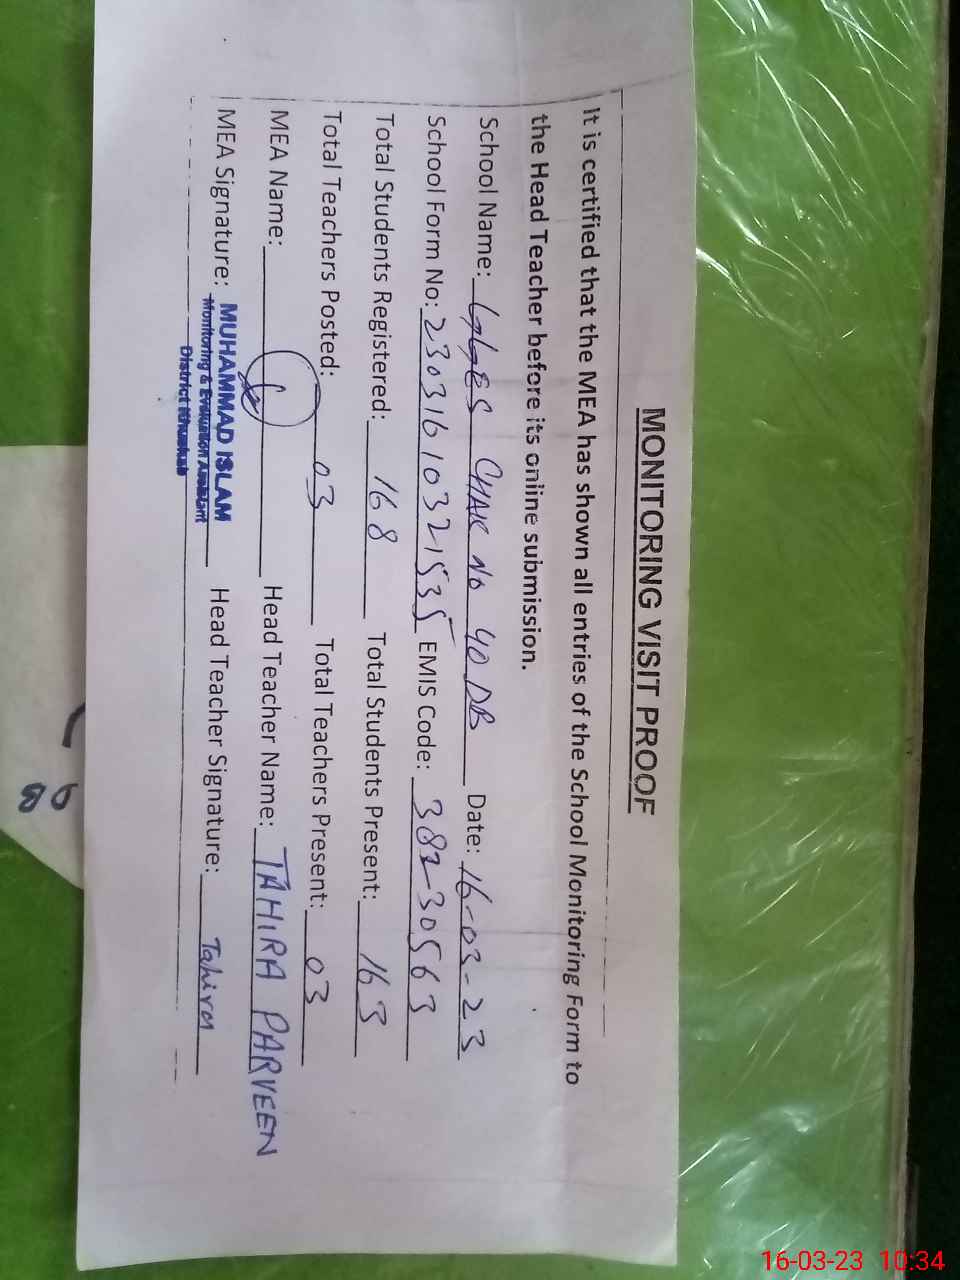 MONITORING VISIT PROOF
It is certified that the MEA has shown all entries of the School Monitoring Form to
the Head Teacher before its online submission.
School Name: GGES CHAK No 40 DB Date: 16-03-23
School Form No: 23031610321535 EMIS Code: 38230563
Total Students Registered: 168 Total Students Present: 163
Total Teachers Posted: 03 Total Teachers Present: 03
MEA Name: Head Teacher Name: TAHIRA PARVEEN
MEA Signature: MUHAMMAD ISLAM Head Teacher Signature: Tahira
Monitoring & Evaluation Assistant
District Khushab
16-03-23 10:34